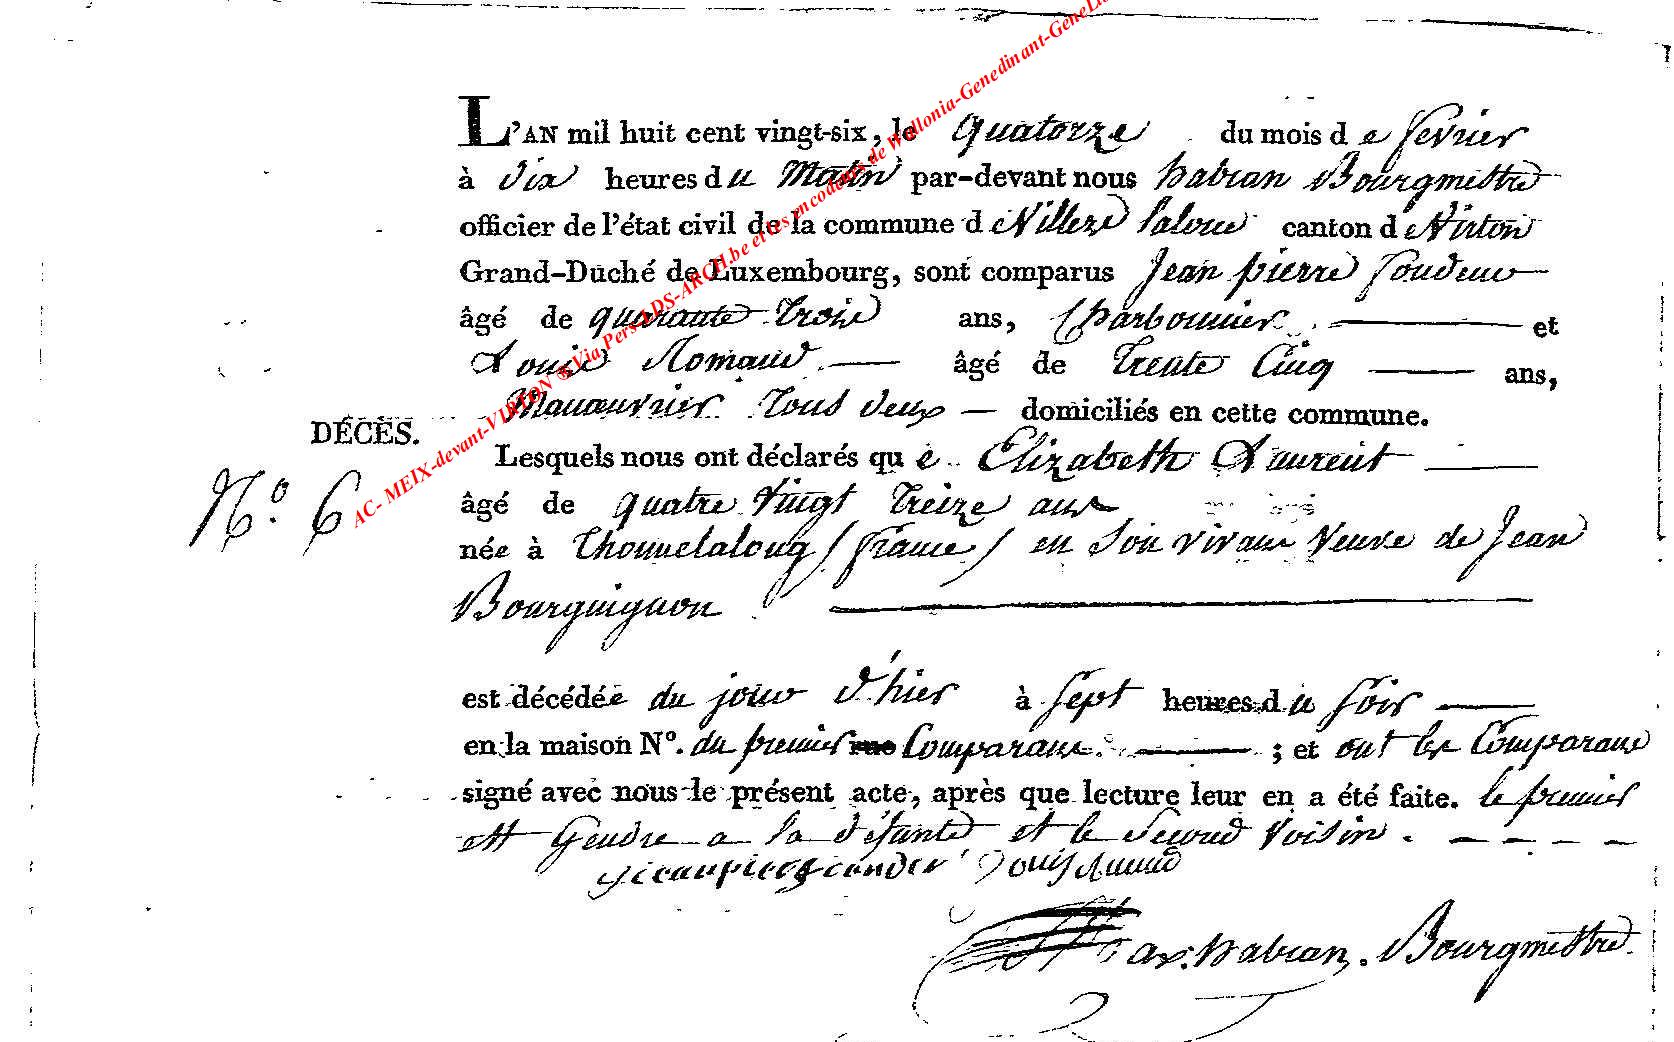 L'AN mil huit cent vingt-six, le quatorze du mois d e fevrier
à dix heures d u Matin par-devant nous habran Bourgmestre
officier de l'état civil de la commune d e Villers laloue canton d e Virton
Grand-Duché de Luxembourg, sont comparus Jean pierre
âgé de quarante trois ans, Charbonnier et
Louis Romand âgé de trente Cinq ans,
Manoeuvrier tous deux domiciliés en cette commune.
DÉCÈS.
Lesquels nous ont déclarés qu e Elizabeth Laurent
N.o 6
âgé de quatre vingt treize ans
née à thonnelalong (france) en son vivant veuve de Jean
Bourguignon
est décédée du jour d'hier à sept heures d u soir
en la maison N°. du premier rue Comparant ; et ont les Comparant
signé avec nous le présent acte, après que lecture leur en a été faite. le premier
est Gendre a la défunte et le second voisin.
Louis
habran, Bourgmestre
AC- MEIX-devant-VIRTON ® Via Pers-LDS-ARCH.be et les encodeurs de Wallonia-Genedinant-GeneLu